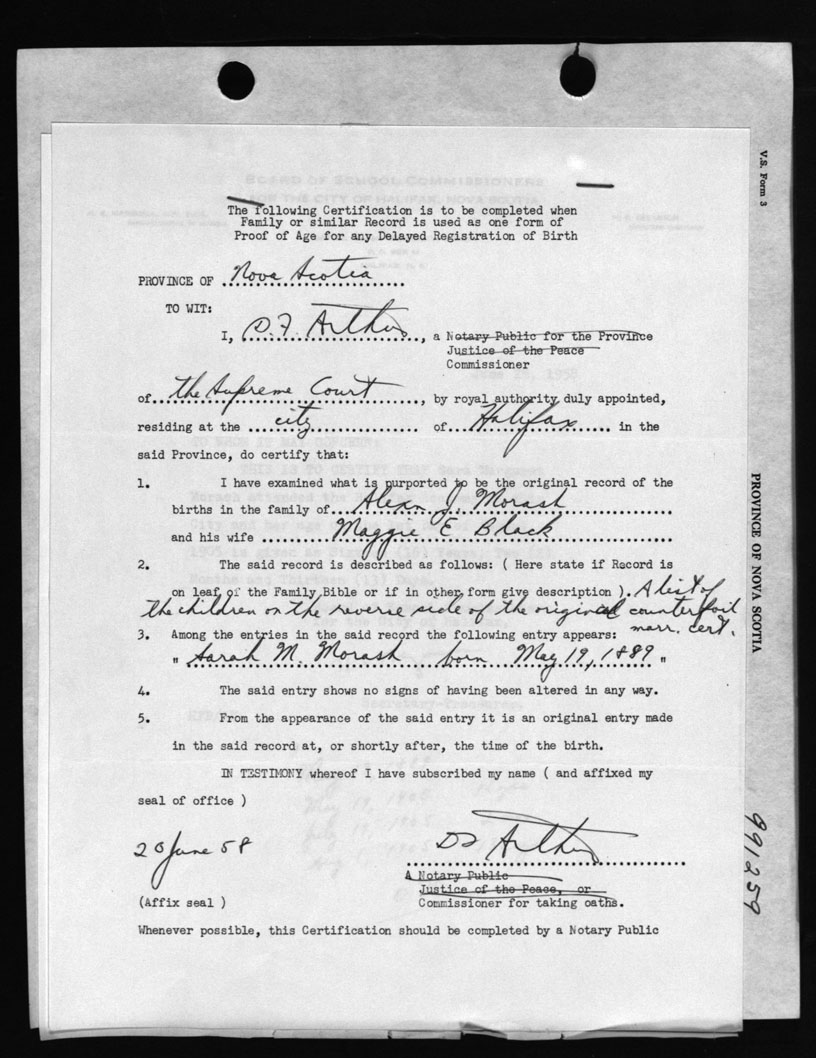 BOARD OF SCHOOL COMMISSIONERS
OF THE CITY OF HALIFAX, NOVA SCOTIA
The following Certification is to be completed when
Family or similar Record is used as one form of
Proof of Age for any Delayed Registration of Birth
PROVINCE OF Nova Scotia
TO WIT:
I, D.F. Arthur, a Notary Public for the Province
Justice of the Peace
Commissioner
of the Supreme Court, by royal authority duly appointed,
residing at the city of Halifax in the
said Province, do certify that:
1. I have examined what is purported to be the original record of the
births in the family of Alexn J. Morash
and his wife Maggie E Black
2. The said record is described as follows: ( Here state if Record is
on leaf of the Family Bible or if in other form give description ). A list of
the children on the reverse side of the original counterfoil
marr. cert.
3. Among the entries in the said record the following entry appears:
" Sarah M. Morash born May 19, 1889 "
4. The said entry shows no signs of having been altered in any way.
5. From the appearance of the said entry it is an original entry made
in the said record at, or shortly after, the time of the birth.
IN TESTIMONY whereof I have subscribed my name ( and affixed my
seal of office )
20 June 58
DF Arthur
A Notary Public
Justice of the Peace, or
(Affix seal ) Commissioner for taking oaths.
Whenever possible, this Certification should be completed by a Notary Public
V.S. Form 3
PROVINCE OF NOVA SCOTIA
991259